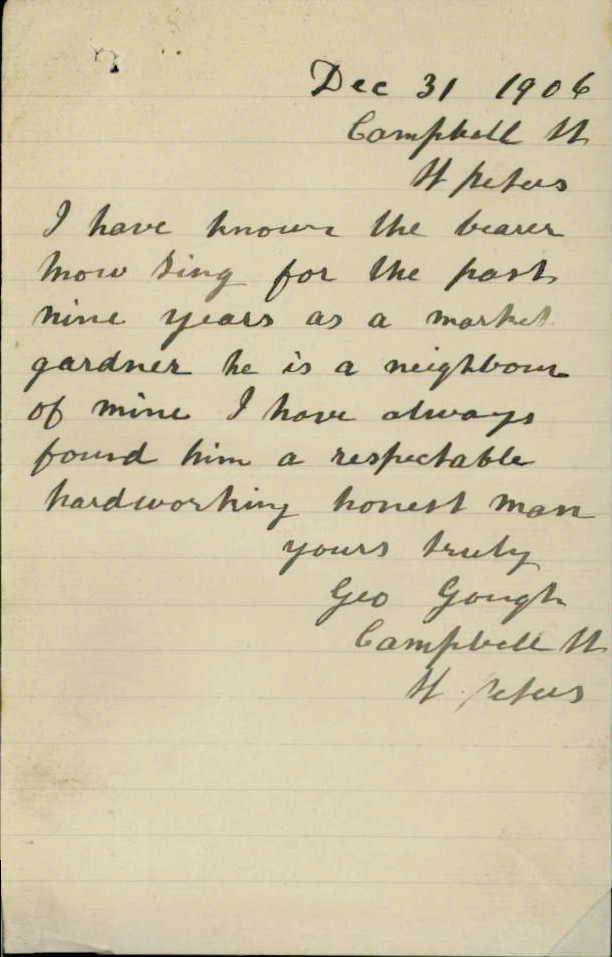 Dec 31 1906
Campbell St
St Peters
I have known the bearer
Mow Sing for the past
nine years as a market
gardner he is a neighbour
of mine I have always
found him a respectable
hardworking honest man
yours truly
Geo Gough
Campbell St
St Peters